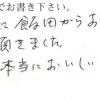 でお書き下さい。
に飯田からお
頂きました
本当においしい